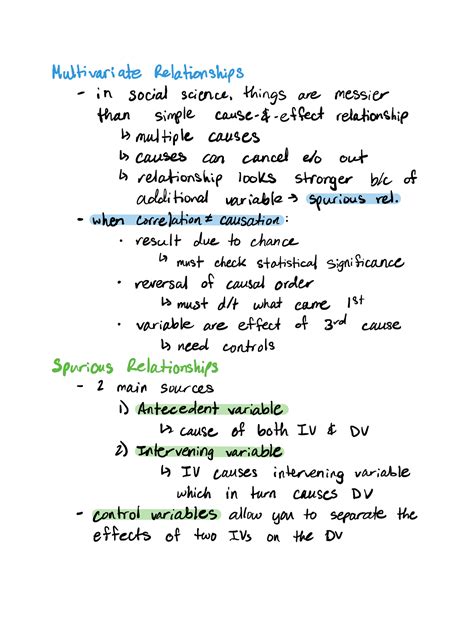 Multivariate Relationships
- in social science, things are messier
than simple cause-&-effect relationship
↳ multiple causes
↳ causes can cancel e/o out
↳ relationship looks stronger b/c of
additional variable → spurious rel.
- when correlation ≠ causation:
• result due to chance
↳ must check statistical significance
• reversal of causal order
↳ must d/t what came 1st
• variable are effect of 3rd cause
↳ need controls
Spurious Relationships
- 2 main sources
1) Antecedent variable
↳ cause of both IV & DV
2) Intervening variable
↳ IV causes intervening variable
which in turn causes DV
- control variables allow you to separate the
effects of two IVs on the DV